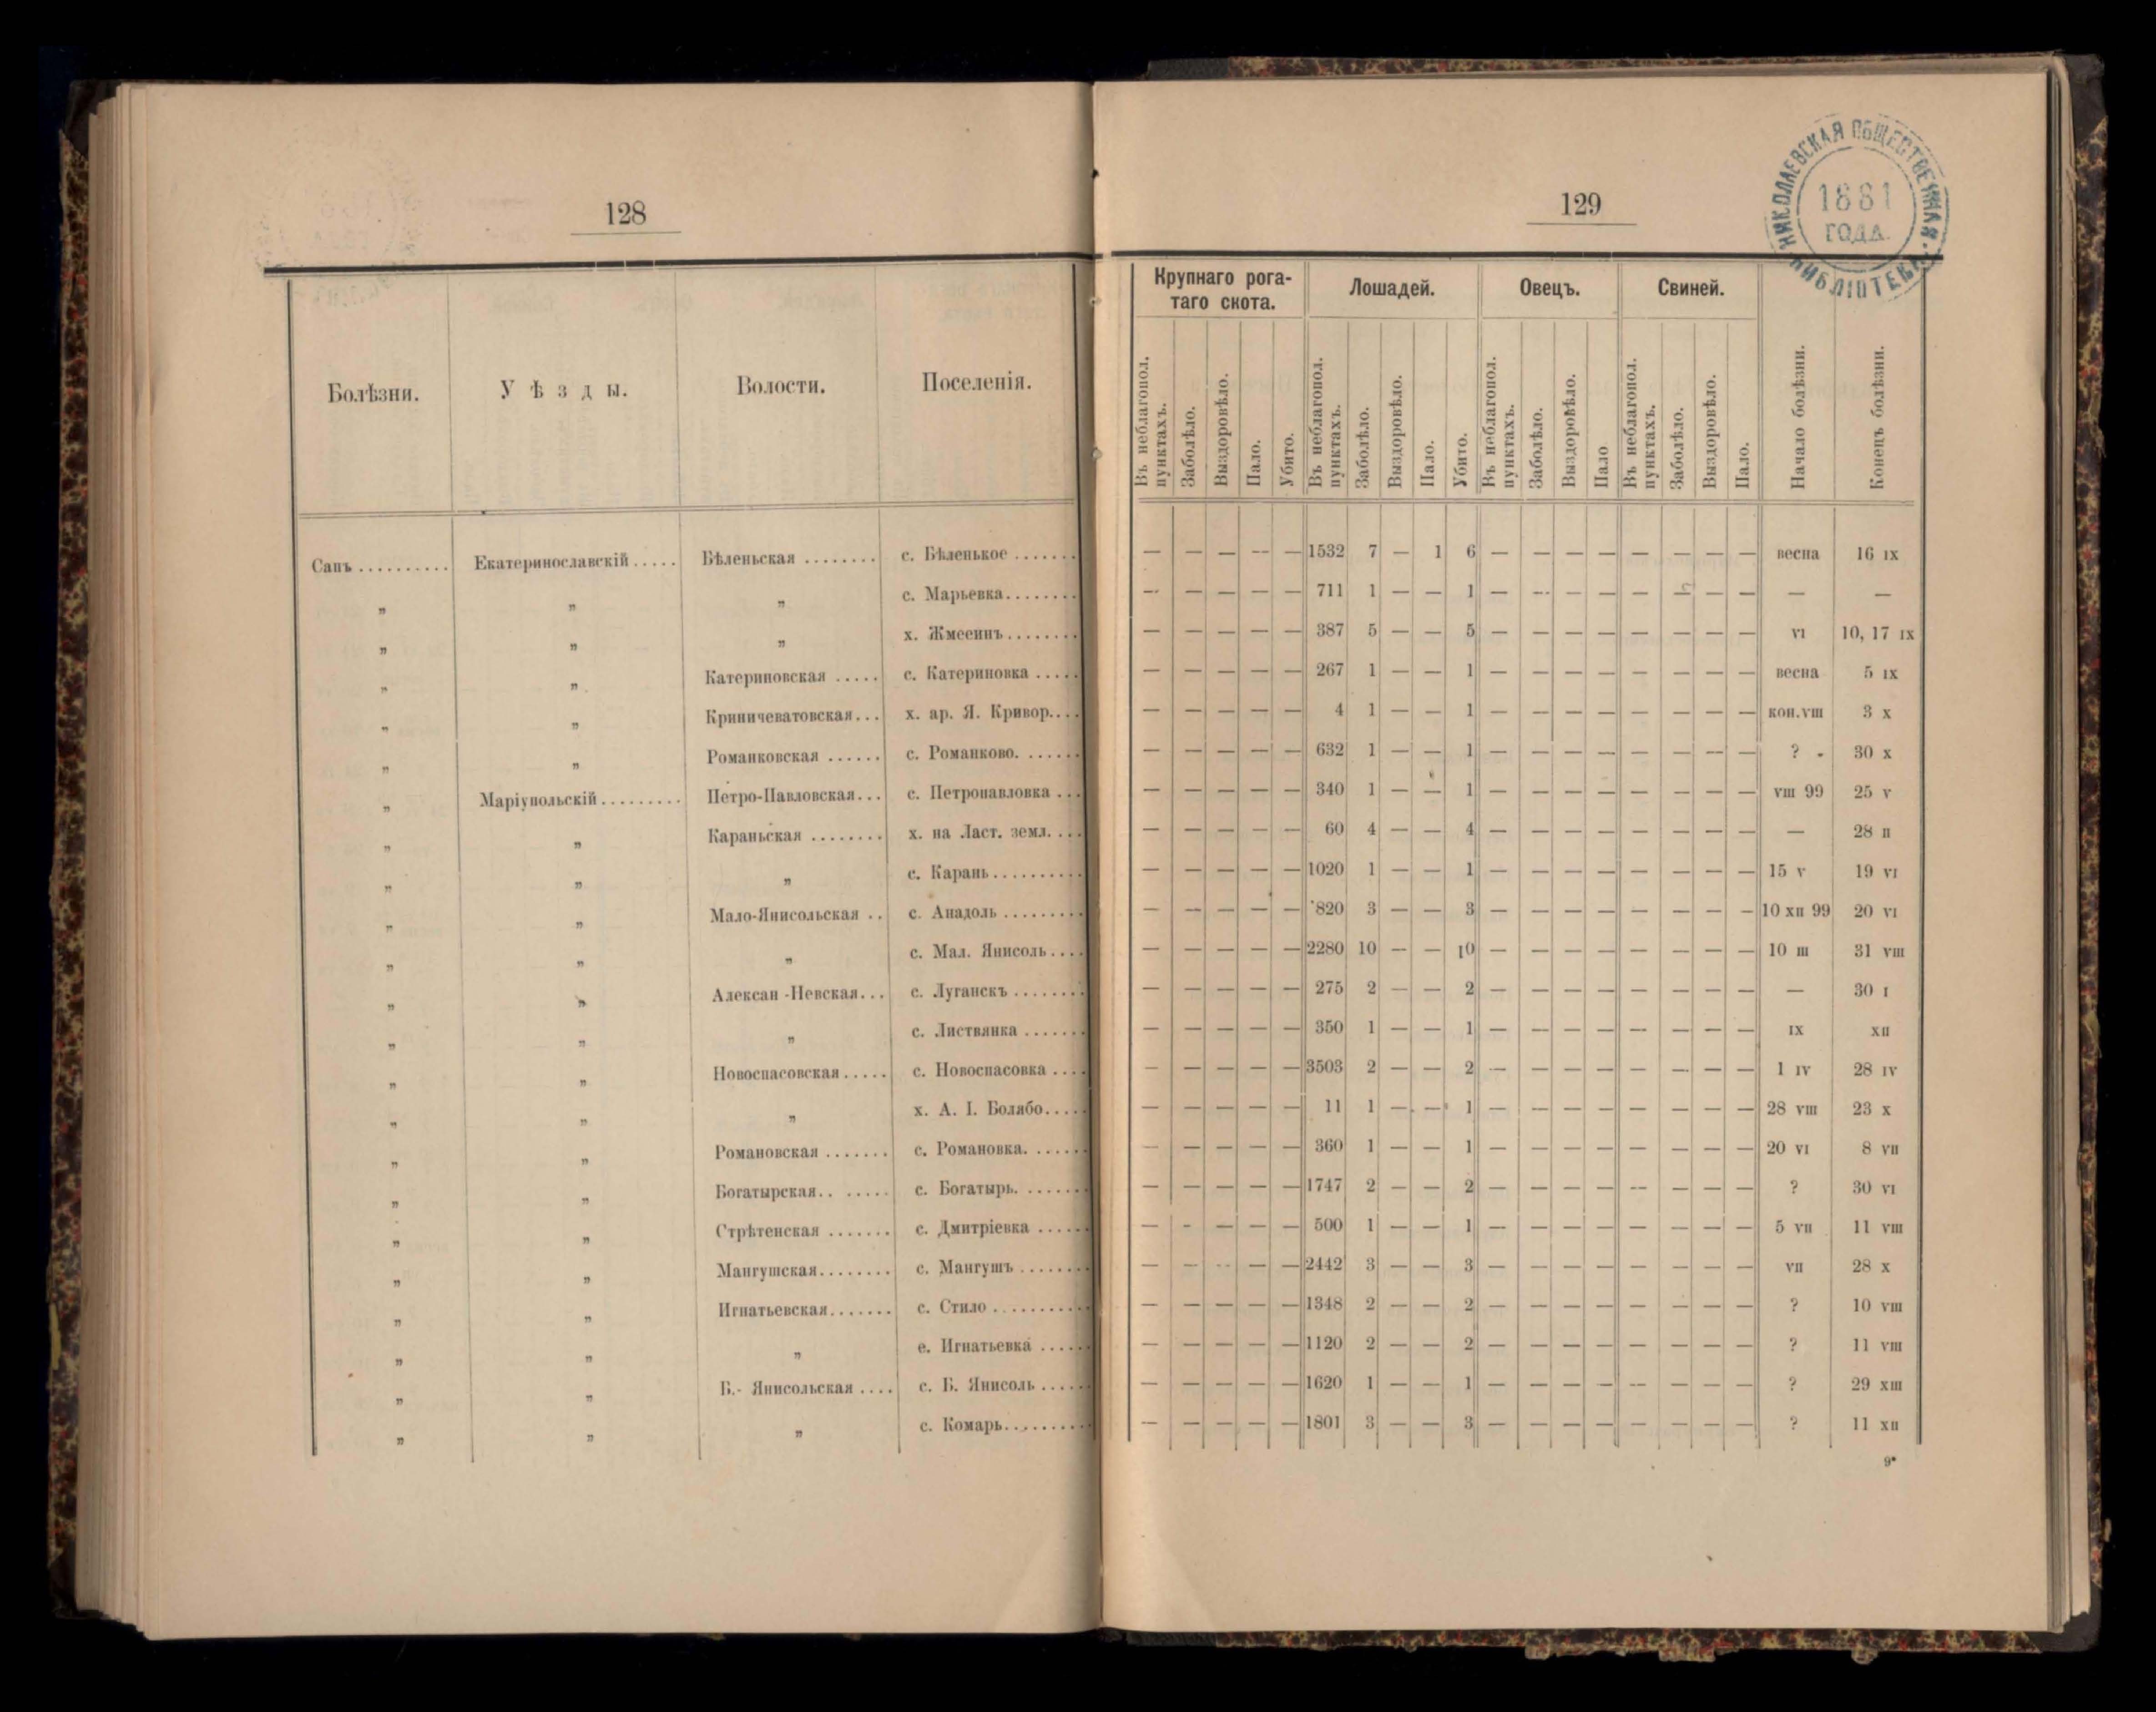 128
Болѣзни. Уѣзды. Волости. Поселенія.
Сапъ .......... Екатеринославскій ..... Бѣленьская ........ с. Бѣленькое .......
„ „ „ с. Марьевка........
„ „ „ х. Жмеинъ........
„ „ Катериновская ..... с. Катериновка .....
„ „ Криничеватовская... х. ар. Я. Кривор....
„ „ Романковская ...... с. Романково. ......
„ Маріупольскій ......... Петро-Павловская... с. Петропавловка ...
„ „ Караньская ........ х. на Ласт. земл. ...
„ „ „ с. Карань..........
„ „ Мало-Янисольская .. с. Анадоль .........
„ „ „ с. Мал. Янисоль....
„ „ Алексан-Невская... с. Луганскъ ........
„ „ „ с. Листвянка .......
„ „ Новоспасовская ..... с. Новоспасовка ....
„ „ „ х. А. І. Болябо.....
„ „ Романовская ....... с. Романовка. ......
„ „ Богатырская.. ...... с. Богатырь. .......
„ „ Стрѣтенская ....... с. Дмитріевка ......
„ „ Мангушская........ с. Мангушъ ........
„ „ Игнатьевская....... с. Стило ...........
„ „ „ е. Игнатьевка ......
„ „ Б.- Янисольская .... с. Б. Янисоль ......
„ „ „ с. Комарь..........
129
НИКОЛАЕВСКАЯ ОБЩЕСТВЕННАЯ БИБЛІОТЕКА
1881
ГОДА.
Крупнаго рога-
таго скота. Лошадей. Овецъ. Свиней.
Въ неблагопол. пунктахъ. Заболѣло. Выздоровѣло. Пало. Убито. Въ неблагопол. пунктахъ. Заболѣло. Выздоровѣло. Пало. Убито. Въ неблагопол. пунктахъ. Заболѣло. Выздоровѣло. Пало Въ неблагопол. пунктахъ. Заболѣло. Выздоровѣло. Пало. Начало болѣзни. Конецъ болѣзни.
— — — — — 1532 7 — 1 6 — — — — — — — — весна 16 IX
— — — — — 711 1 — — 1 — — — — — — — — — —
— — — — — 387 5 — — 5 — — — — — — — — VI 10, 17 IX
— — — — — 267 1 — — 1 — — — — — — — — весна 5 IX
— — — — — 4 1 — — 1 — — — — — — — — кон.VIII 3 X
— — — — — 632 1 — — 1 — — — — — — — — ? 30 X
— — — — — 340 1 — — 1 — — — — — — — — VIII 99 25 V
— — — — — 60 4 — — 4 — — — — — — — — — 28 II
— — — — — 1020 1 — — 1 — — — — — — — — 15 V 19 VI
— — — — — 820 3 — — 3 — — — — — — — — 10 XII 99 20 VI
— — — — — 2280 10 — — 10 — — — — — — — — 10 III 31 VIII
— — — — — 275 2 — — 2 — — — — — — — — — 30 I
— — — — — 350 1 — — 1 — — — — — — — — IX XII
— — — — — 3503 2 — — 2 — — — — — — — — 1 IV 28 IV
— — — — — 11 1 — — 1 — — — — — — — — 28 VIII 23 X
— — — — — 360 1 — — 1 — — — — — — — — 20 VI 8 VII
— — — — — 1747 2 — — 2 — — — — — — — — ? 30 VI
— — — — — 500 1 — — 1 — — — — — — — — 5 VII 11 VIII
— — — — — 2442 3 — — 3 — — — — — — — — VII 28 X
— — — — — 1348 2 — — 2 — — — — — — — — ? 10 VIII
— — — — — 1120 2 — — 2 — — — — — — — — ? 11 VIII
— — — — — 1620 1 — — 1 — — — — — — — — ? 29 XIII
— — — — — 1801 3 — — 3 — — — — — — — — ? 11 XII
9*